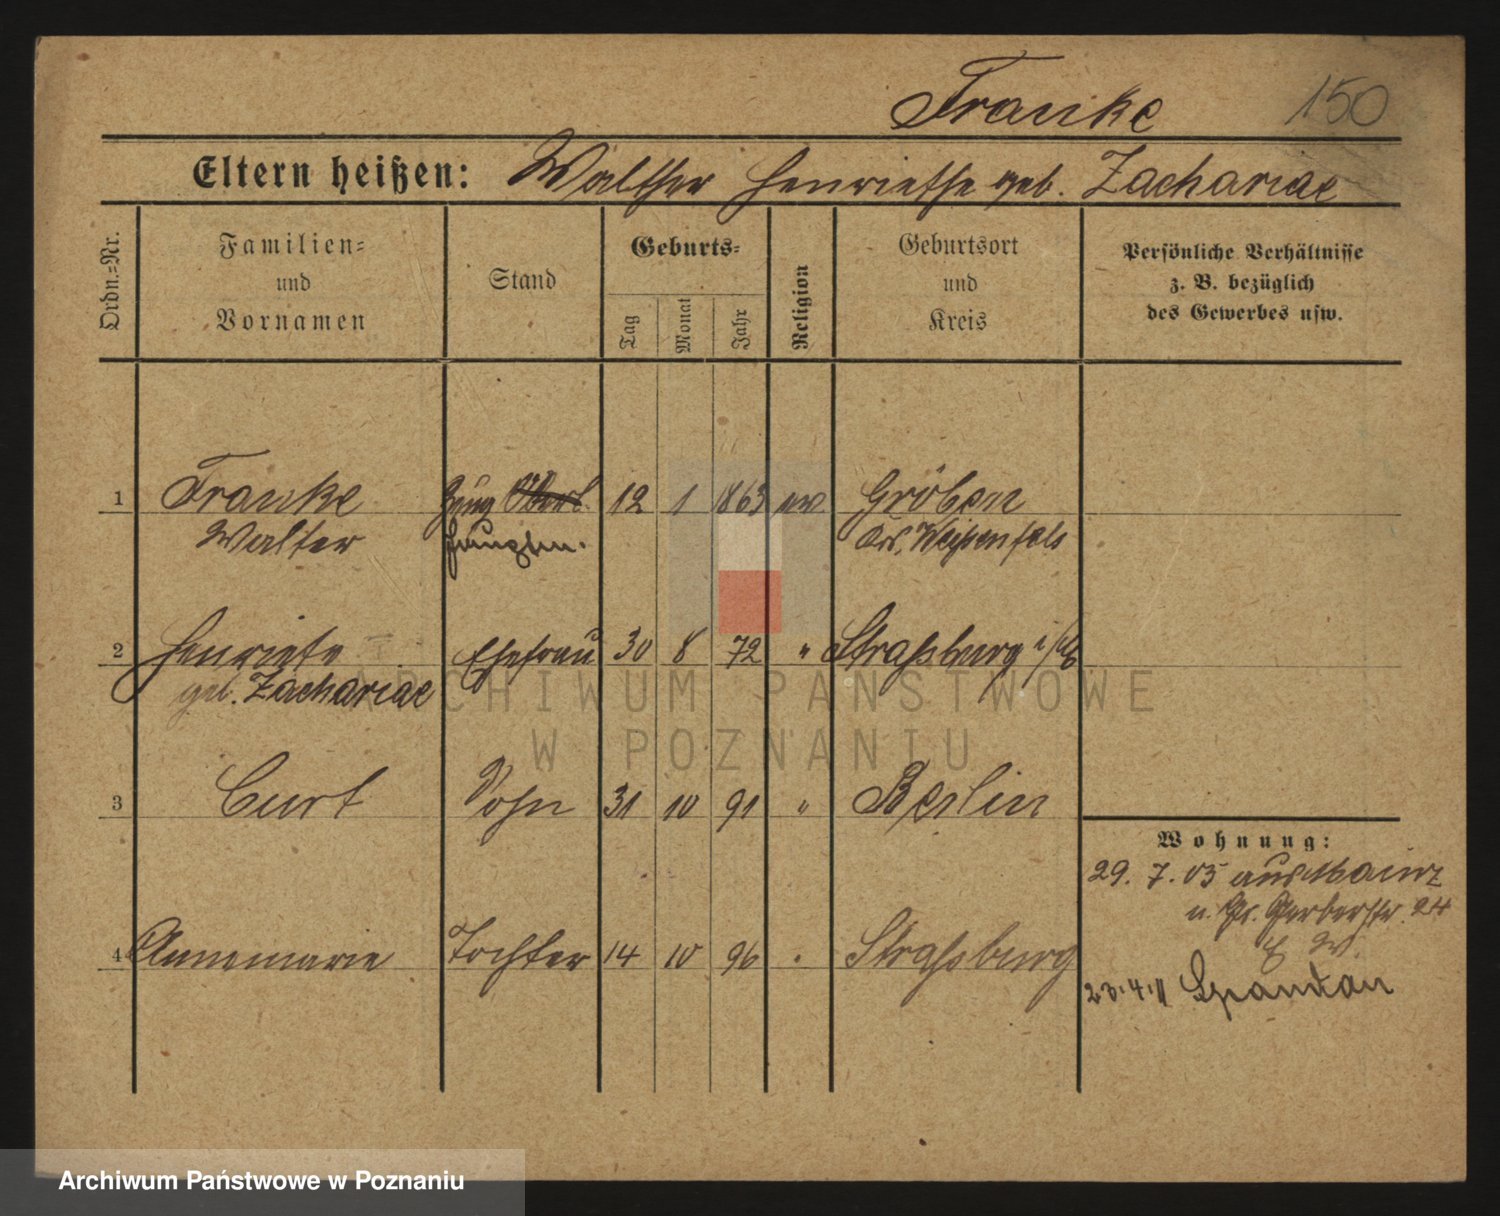 Franke 150
Eltern heißen: Walther Henriethe geb. Zachariae
Ordn.=Nr.
Familien=
und
Vornamen
Stand
Geburts=
Tag
Monat
Jahr
Religion
Geburtsort
und
Kreis
Persönliche Verhältnisse
z. B. bezüglich
des Gewerbes usw.
1 Franke Zeug 12 1 1863 ev Gröben
Walter Krs. Weißenfels
2 Henriete Ehefrau 30 8 72 " Straßburg i/Els
geb. Zachariae
3 Curt Sohn 31 10 91 " Berlin
Wohnung:
29. 7. 05 aus Mainz
n. Gr. Gerberstr. 24
4 Annemarie Tochter 14 10 96 " Straßburg
23.4.11 Spandau
ARCHIWUM PAŃSTWOWE
W POZNANIU
Archiwum Państwowe w Poznaniu